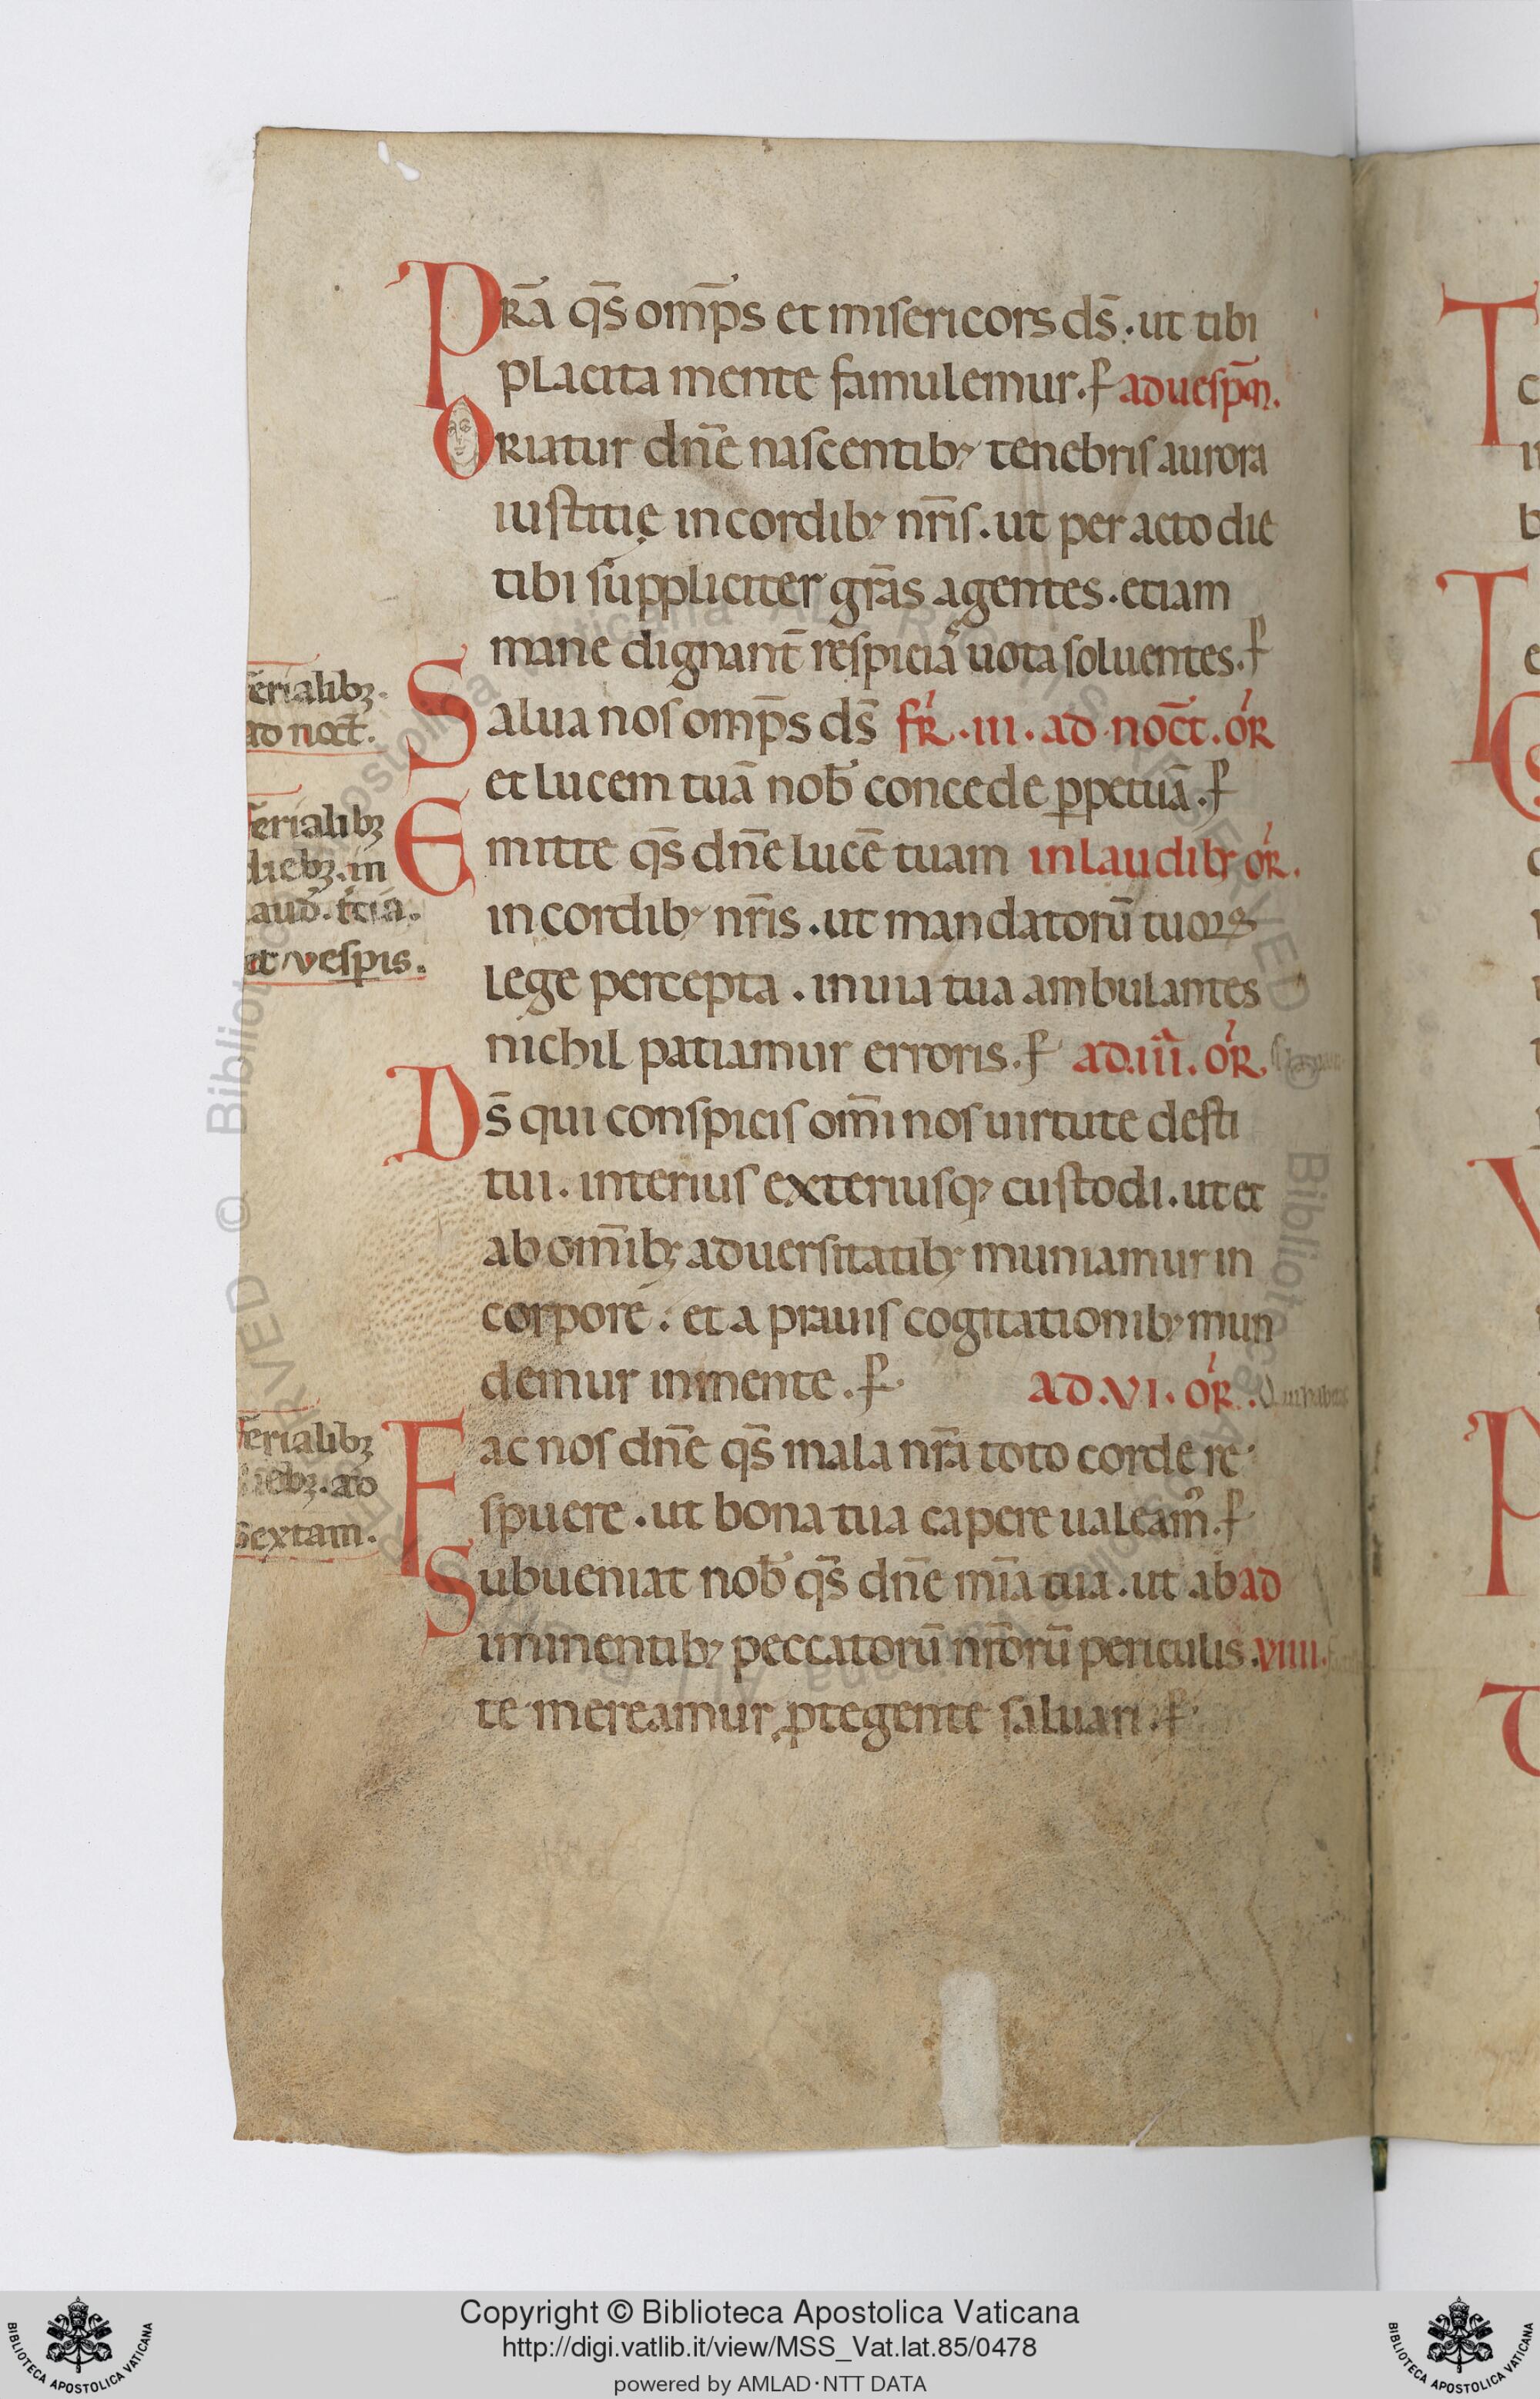 PRā q̄s omp̄s et misericors ds̄. ut tibi
placita mente famulemur. ꝑ ad uesp̄m.
ORiatur dn̄e nascentib; tenebris aurora
iustitię in cordib; nr̄is. ut peracto die
tibi suppliciter grās agentes. etiam
mane dignant̄ respiciās uota soluentes. ꝑ
ferialibȝ.
ad noct̄.
Salua nos omp̄s ds̄ fr̄. III. ad noct̄. or̄
et lucem tuā nob̄ concede ꝑpetuā. ꝑ
ferialibȝ
diebȝ. in
laud̄. t̄ciā.
et vespis.
Emitte q̄s dn̄e lucē tuam in laudib; or̄.
in cordib; nr̄is. ut mandatorū tuoꝝ
lege percepta. in uia tua ambulantes
nichil patiamur erroris. ꝑ ad. III. or̄.
Ds̄ qui conspicis om̄i nos uirtute desti
tui. interius exteriusq; custodi. ut et
ab om̄ib; aduersitatib; muniamur in
corpore: et a prauis cogitationib; mun
demur in mente. ꝑ ad. VI. or̄.
ferialibȝ
diebȝ. ad
sextam.
Fac nos dn̄e q̄s mala nr̄a toto corde re
spuere. ut bona tua capere ualeam᷒. ꝑ
Subueniat nob̄ q̄s dn̄e mīa tua. ut ab ad
iminentib; peccatorū nr̄orū periculis. VIIII.
te mereamur ꝓtegente saluari. ꝑ
Copyright © Biblioteca Apostolica Vaticana
http://digi.vatlib.it/view/MSS_Vat.lat.85/0478
powered by AMLAD·NTT DATA
BIBLIOTECA APOSTOLICA VATICANA
BIBLIOTECA APOSTOLICA VATICANA